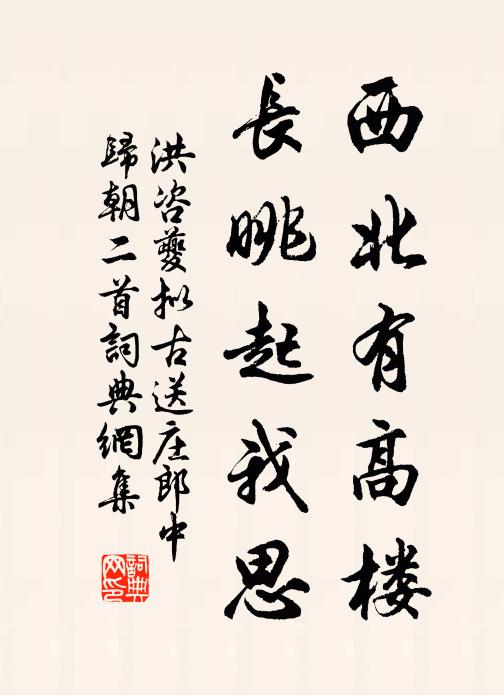 西北有高楼
長眺起我思
洪咨夔拟古送庄郎中
歸朝二首詞典網集
詞典
网印